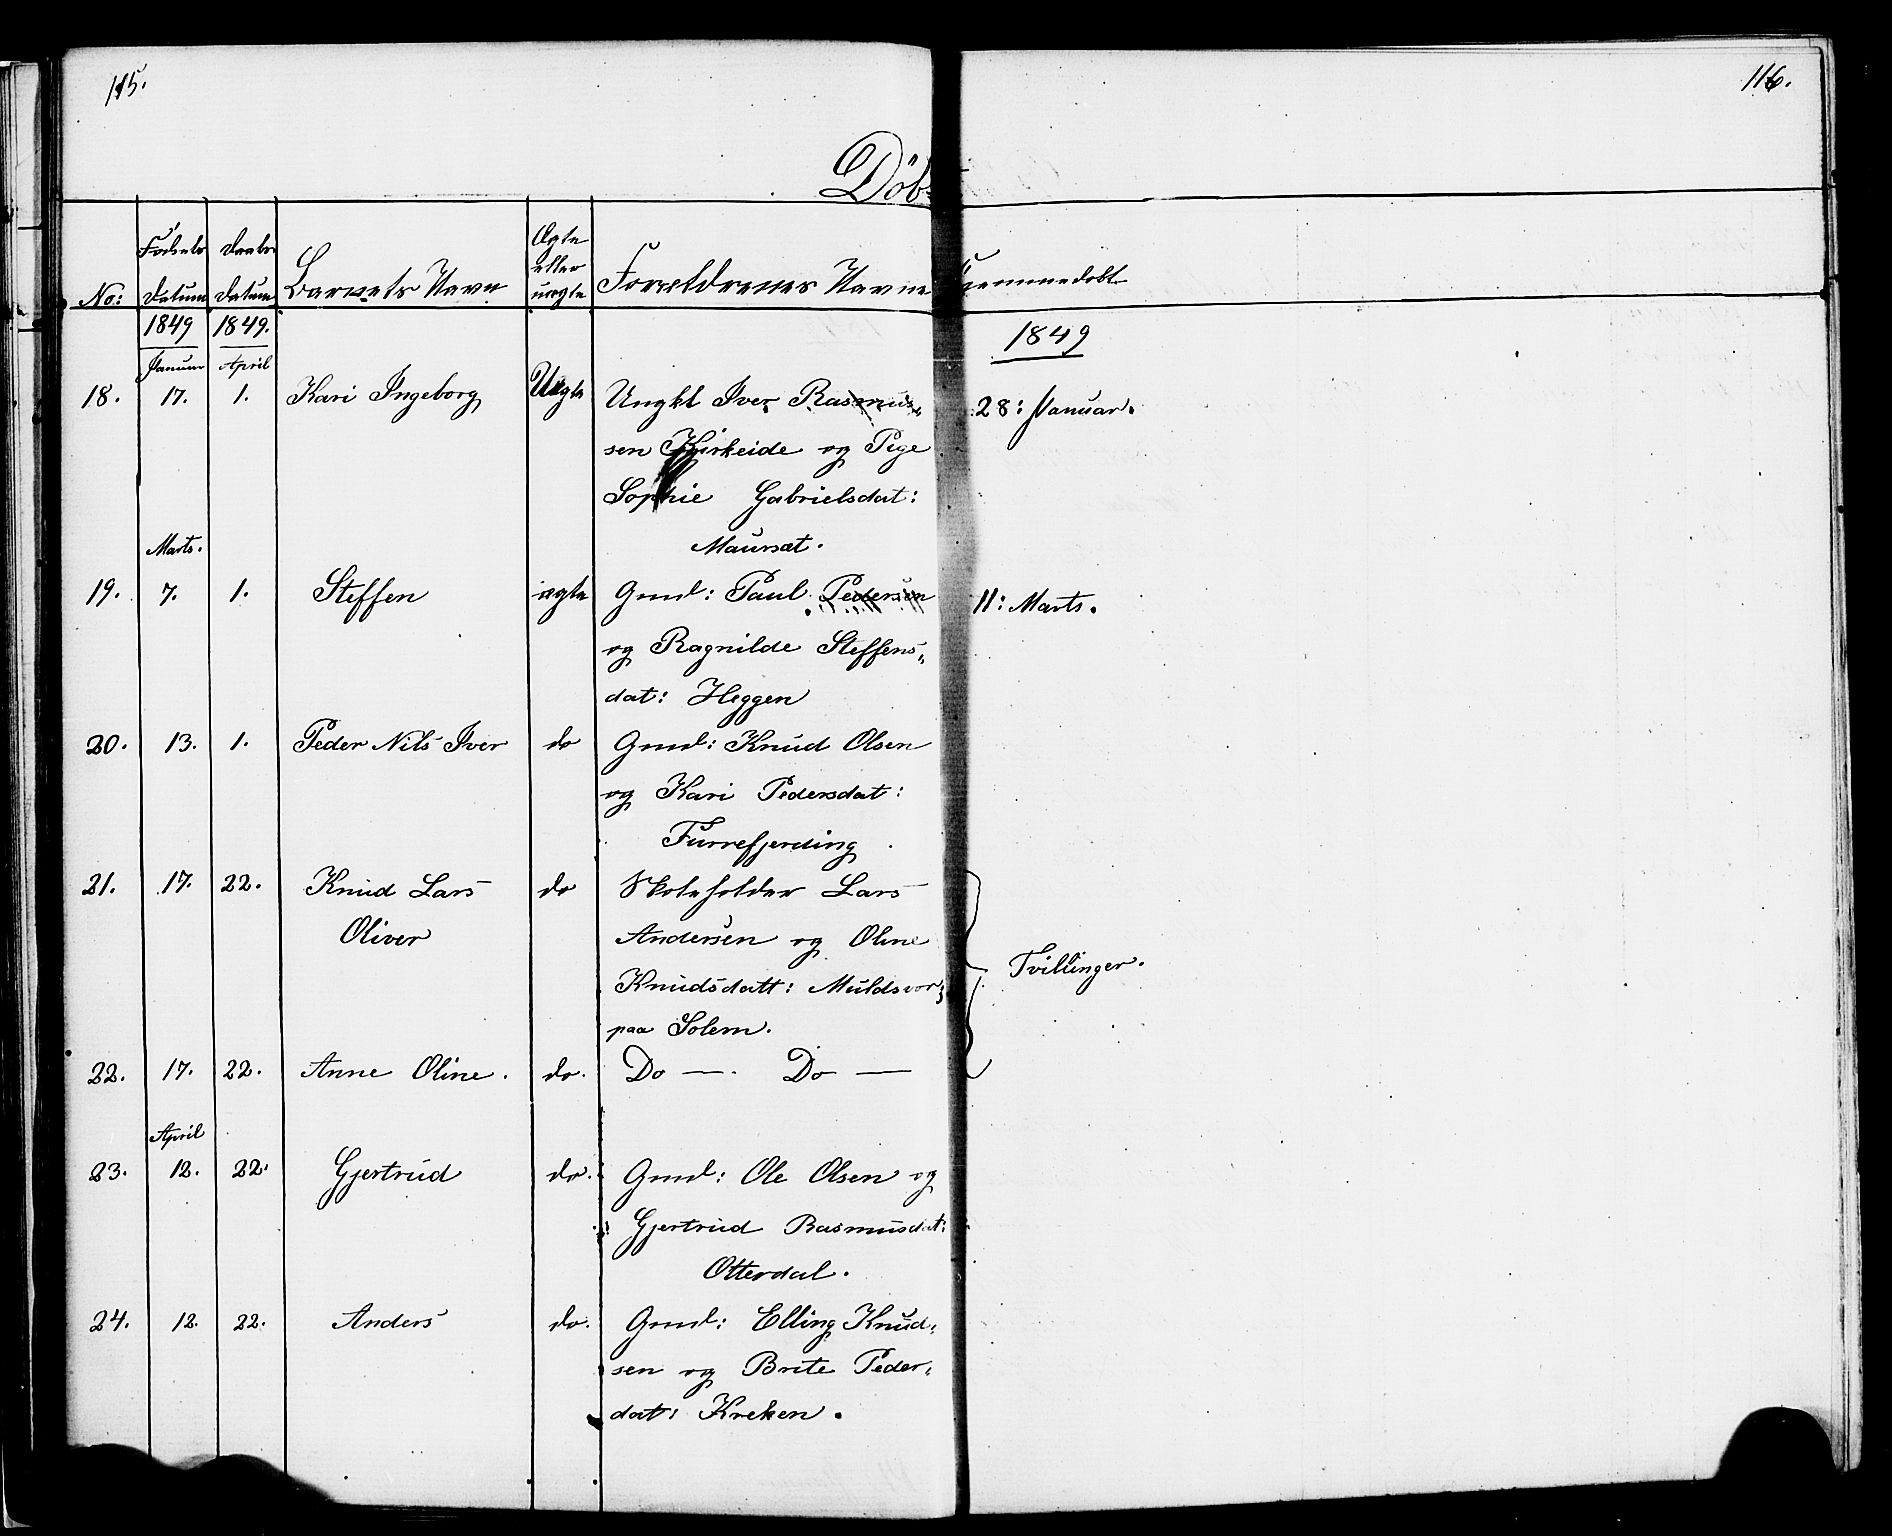 115.
116.
Döb-
No:
Fødsels Datum
Daabs Datum
Barnets Navn
Ægte eller uægte
Forældrenes Navne
Hjemmedøbt
1849 1849.
1849
Januar April
18. 17. 1. Kari Ingeborg Uægte Ungkl Iver Rasmus„ 28: Januar.
sen Kirkeide og Pige
Sophie Gabrielsdat:
Maursæt.
Marts.
19. 7. 1. Steffen ægte Gmd: Paul Pedersen 11: Marts.
og Ragnilde Steffens„
dat: Heggen
20. 13. 1. Peder Nils Iver do Gmd: Knud Olsen
og Kari Pedersdat:
Furrefjerding
21. 17. 22. Knud Lars do Skoleholder Lars
Oliver Andersen og Oline
Tvillinger.
Knudsdatt: Muldsvor
paa Solem.
22. 17. 22. Anne Oline. do. Do — Do —
April
23. 12. 22. Gjertrud do. Gmd: Ole Olsen og
Gjertrud Rasmusdat:
Otterdal.
24. 12. 22. Anders do. Gmd: Elling Knud„
sen og Brite Peder„
dat: Kreken.